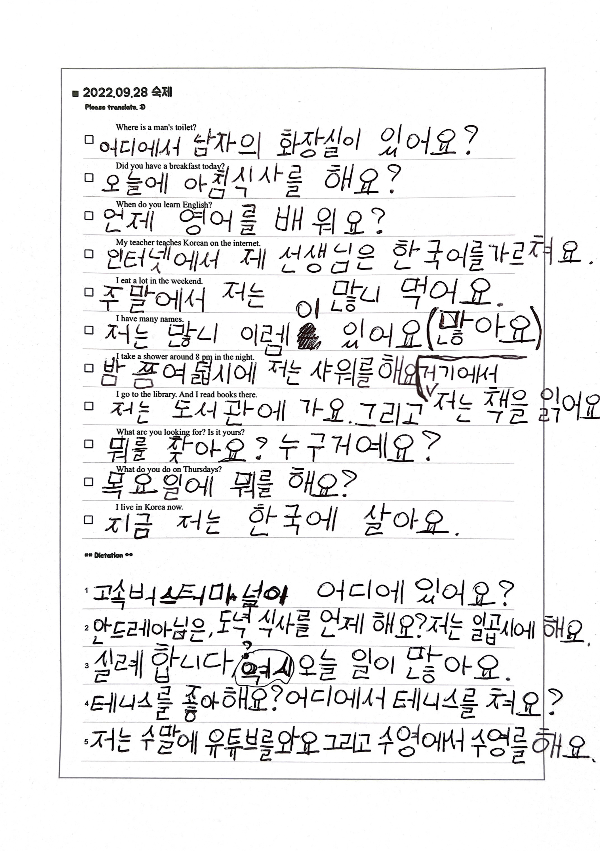 ■ 2022.09.28 숙제
Please translate. :)
Where is a man's toilet?
□ 어디에서 남자의 화장실이 있어요?
Did you have a breakfast today?
□ 오늘에 아침식사를 해요?
When do you learn English?
□ 언제 영어를 배워요?
My teacher teaches Korean on the internet.
□ 인터넷에서 제 선생님은 한국어를 가르쳐요.
I eat a lot in the weekend.
□ 주말에서 저는 많니 먹어요.
I have many names.
□ 저는 많니 이렴이 있어요 (많아요)
I take a shower around 8 pm in the night.
□ 밤 쯤 여덟시에 저는 샤워를 해요
I go to the library. And I read books there.
□ 저는 도서관에 가요. 그리고 거기에서 저는 책을 읽어요
What are you looking for? Is it yours?
□ 뭐를 찾아요? 누구거예요?
What do you do on Thursdays?
□ 목요일에 뭐를 해요?
I live in Korea now.
□ 지금 저는 한국에 살아요.
** Dictation **
1 고속버스터미널이 어디에 있어요?
2 안드레아님은, 도녁 식사를 언제 해요? 저는 일곱시에 해요.
3 실례합니다 오늘 일이 많아요.
4 테니스를 좋아해요? 어디에서 테니스를 쳐요?
5 저는 수말에 유튜브를 와요 그리고 수영에서 수영를 해요.